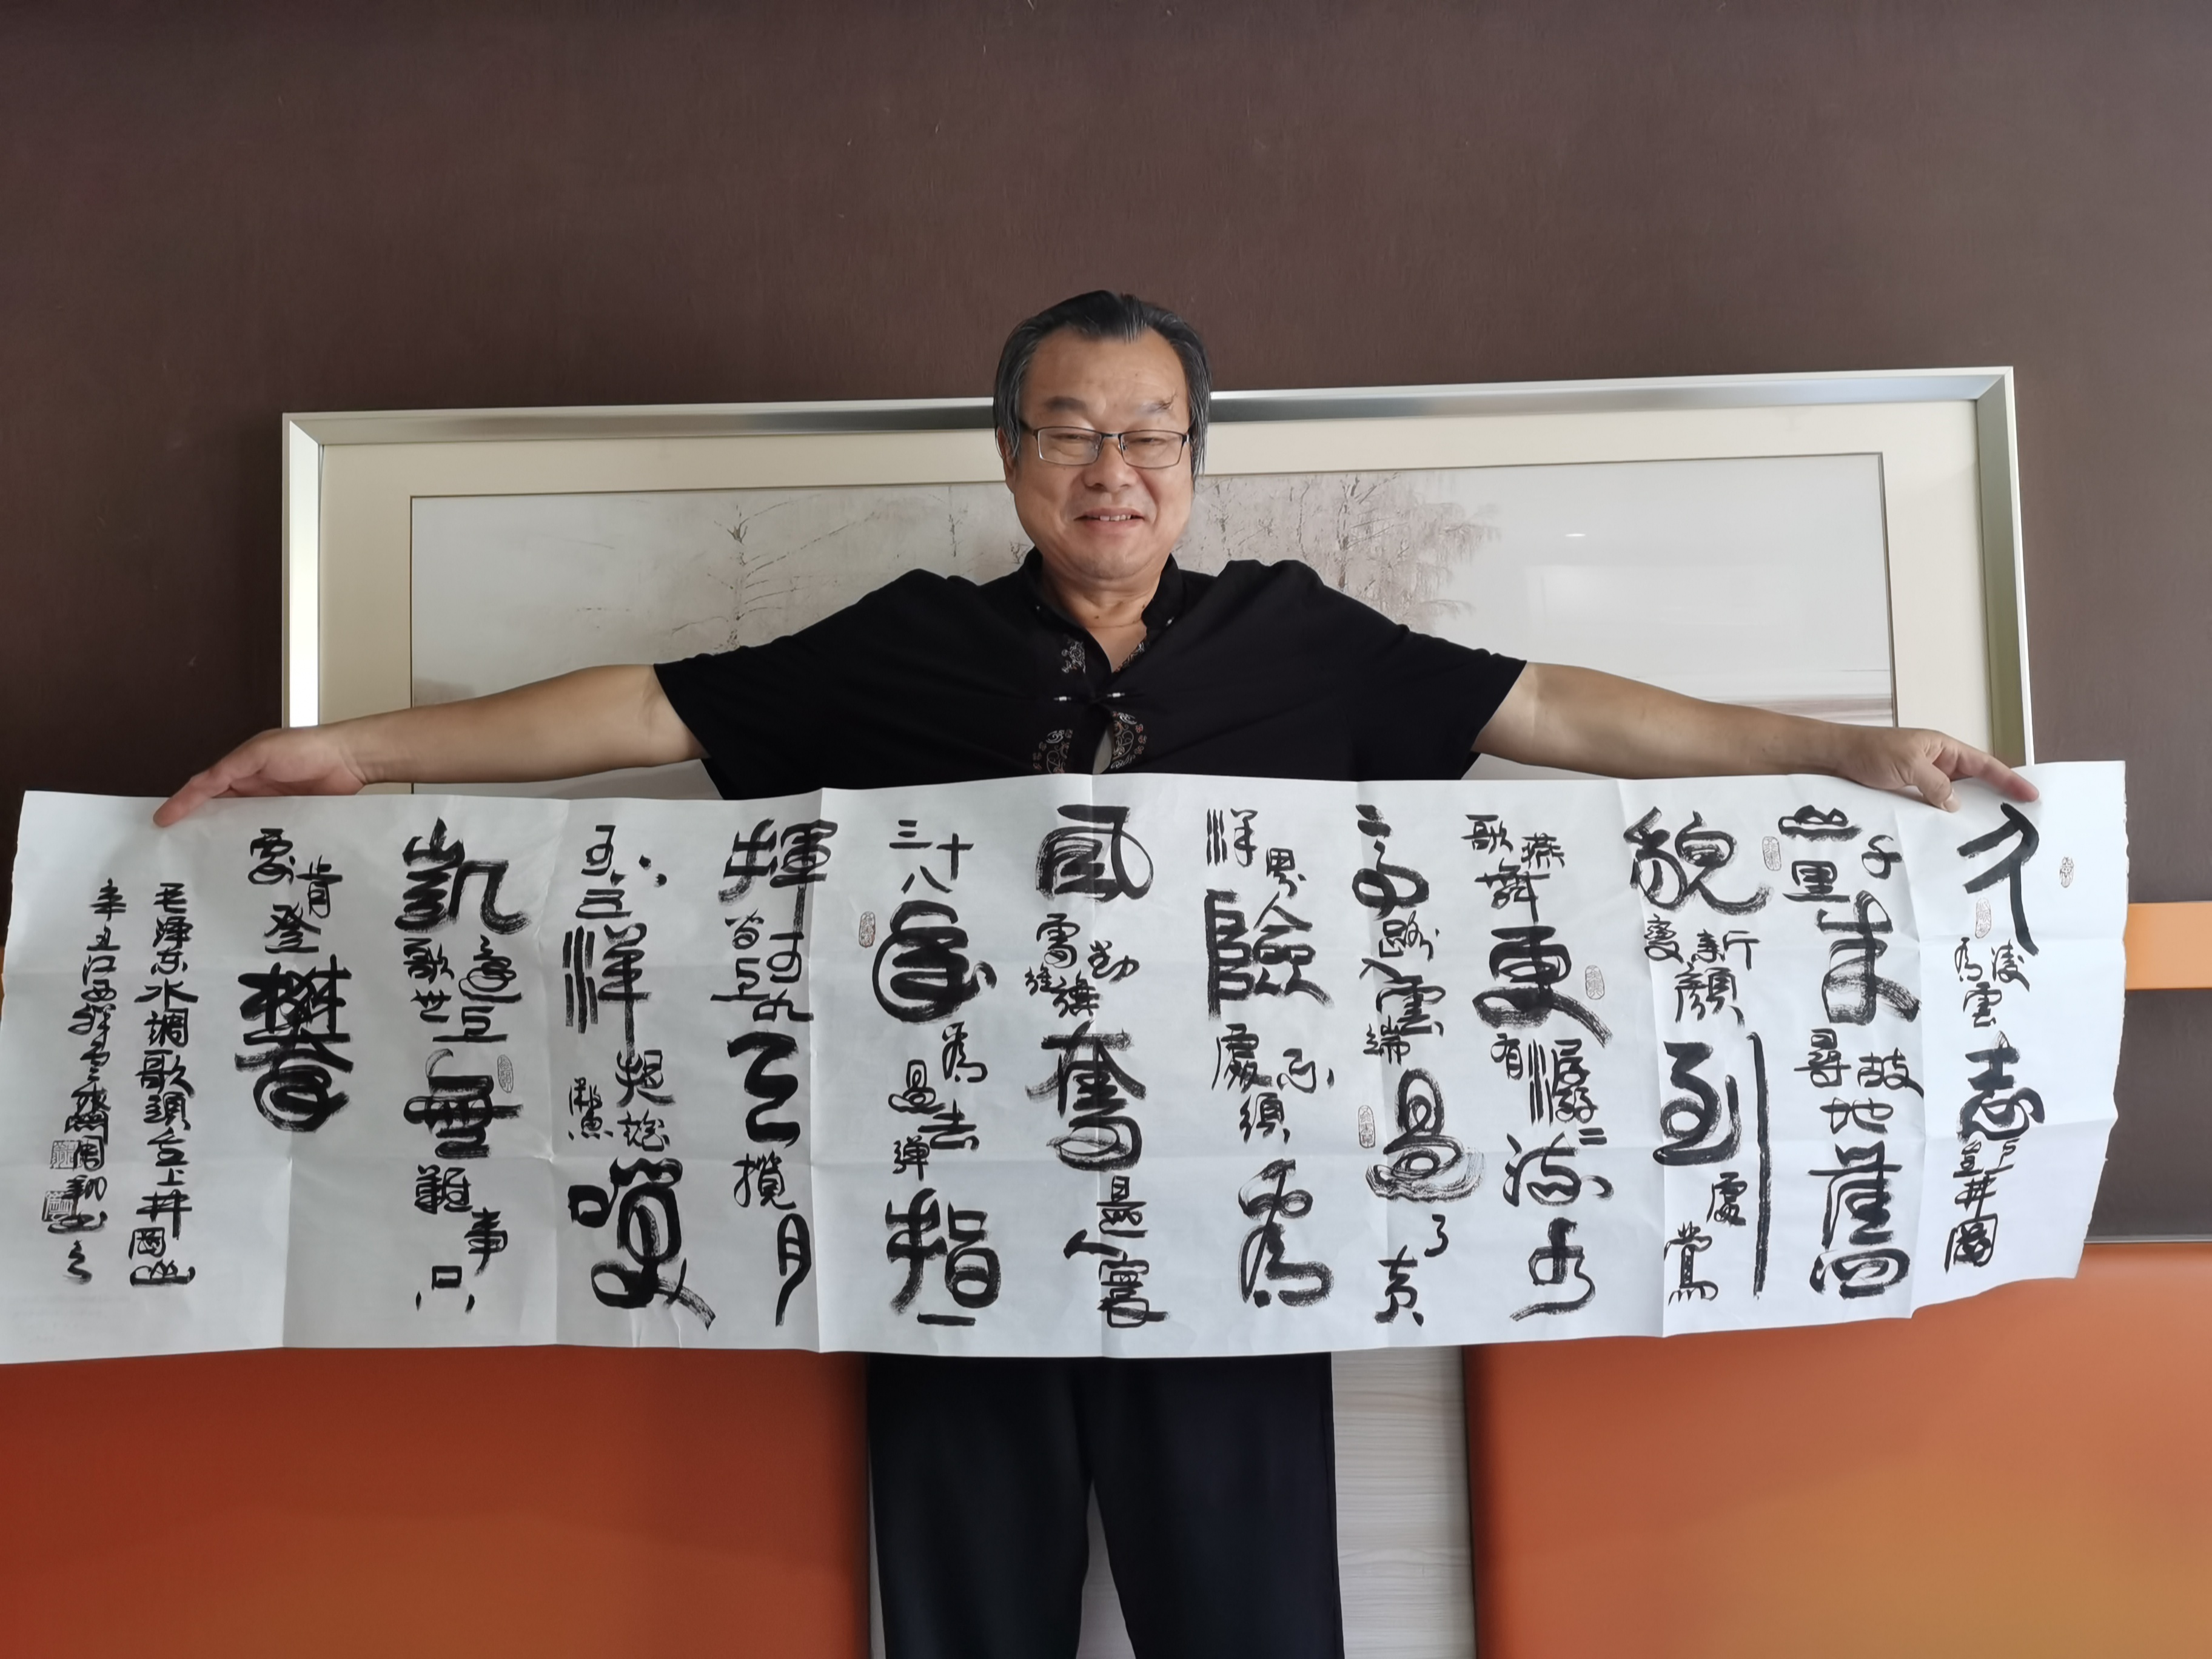 久有凌雲志重上井岡
山千里来尋故地舊
貌變新顔到處鶯
歌燕舞更有潺二流水
高路入雲端過了黄
洋界險處不須看
風雷動旌旗奮是人寰
三十八年過去彈指一
揮間可上九天攬月
可下五洋捉鱉談笑
凱歌還世上無難事只
要肯登攀
毛泽东水調歌頭重上井岡山
辛丑江西